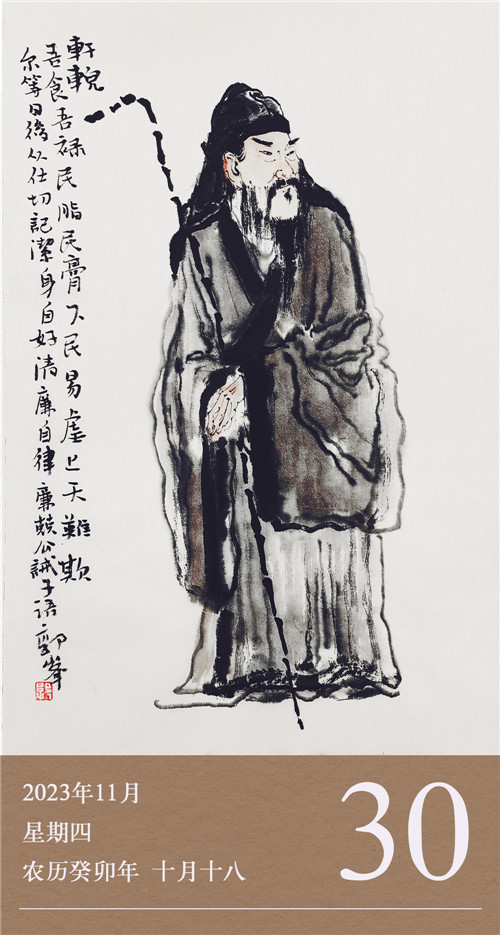 軒輗
吾食吾禄民脂民膏下民易虐上天難欺
尔等日後从仕切記潔身自好清廉自律廉公誡子語郭峯
2023年11月
星期四
农历癸卯年 十月十八
30